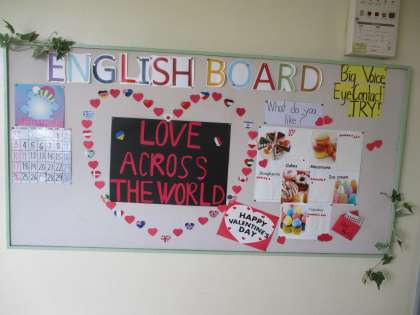 ENGLISH BOARD
Big Voice
Eye Contact
TRY!
What do you
like?
LOVE
ACROSS
THE WORLD
Cakes
Macaroons
Doughnuts
Ice cream
Cupcakes
HAPPY
VALENTINE'S
DAY